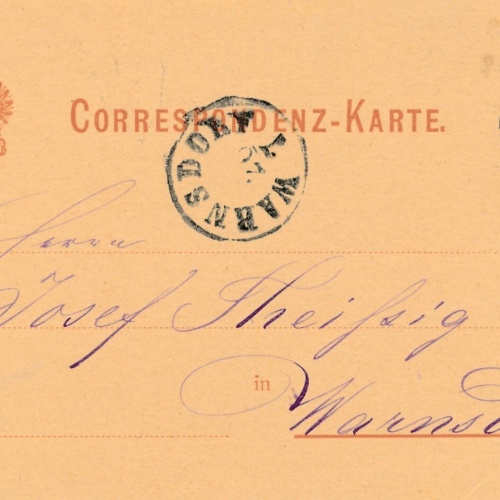 CORRESPONDENZ-KARTE.
WARNSDORF
Herrn
Josef Theißig
in
Warnsd